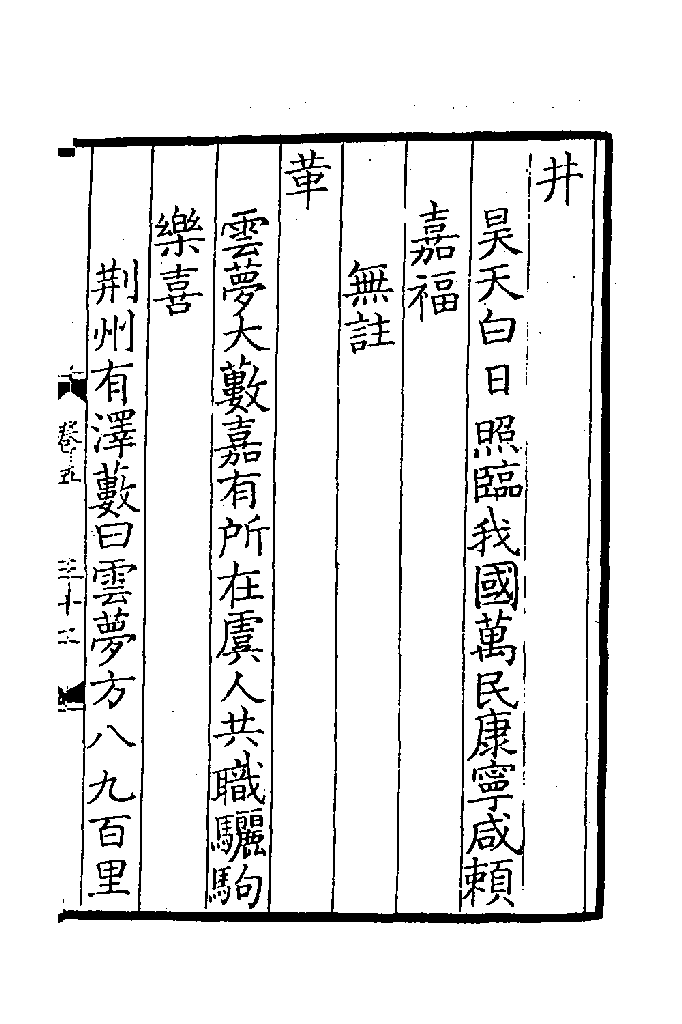 井
昊天白日照臨我國萬民康寧咸頼
嘉福
無註
萃
雲夢大藪嘉有所在虞人共職驪駒
樂喜
荆州有澤藪曰雲夢方八九百里
卷十五